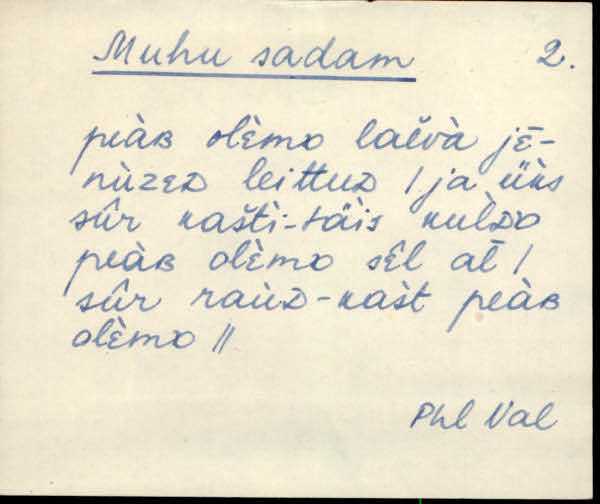 Muhu sadam 2.
peàʙ olèmᴅ laěvà jē-
nùzeᴅ leittuᴅ / ja ǖks
sûr kašti-täis kulᴅᴅ
peàʙ olèmᴅ sēl al̄ /
sûr raùᴅ-kašt peàʙ
olèmᴅ //
Phl Val